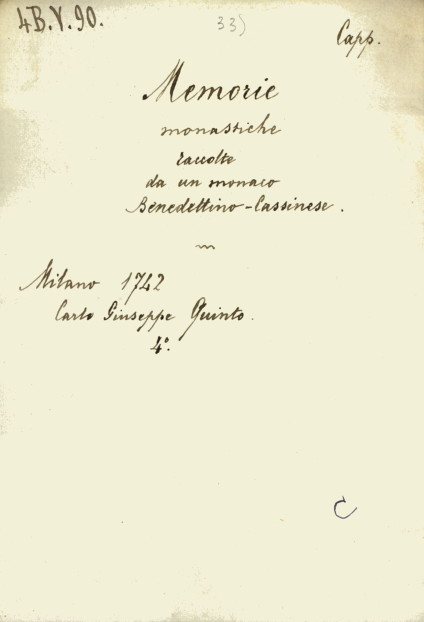 4B.V.90.
33)
Capp.
Memorie
monastiche
raccolte
da un monaco
Benedettino-Cassinese.
Milano 1742
Carlo Giuseppe Quinto.
4º.
C